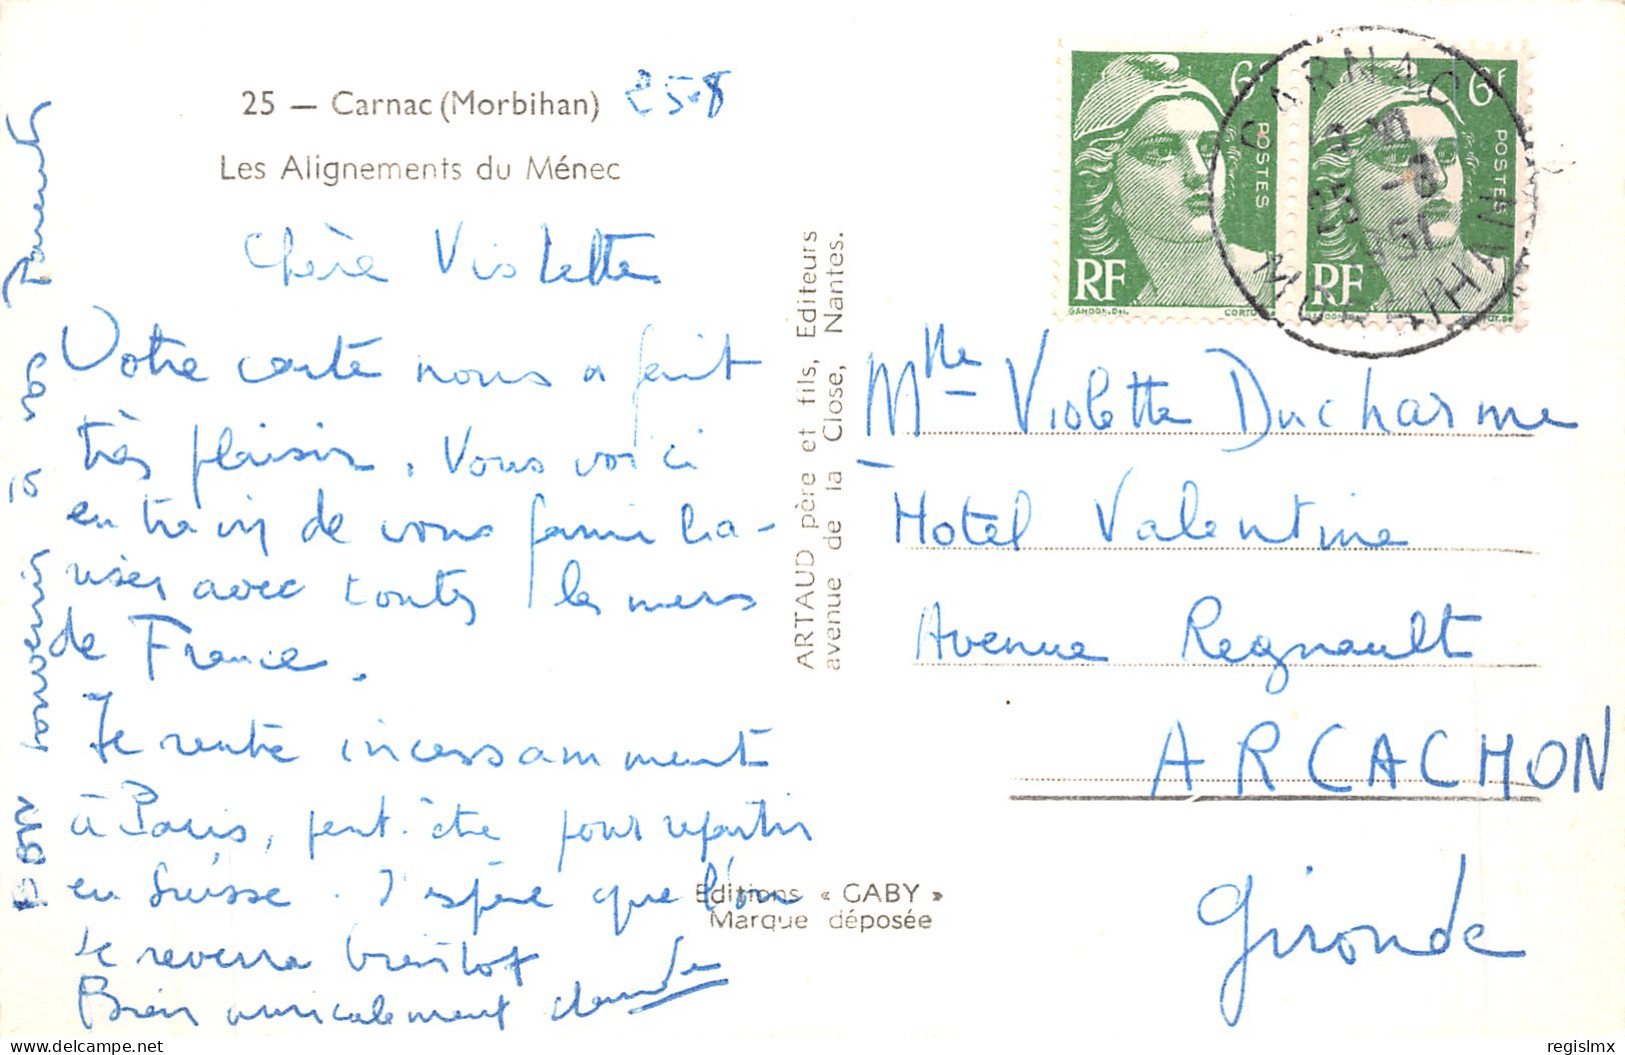 25 — Carnac (Morbihan) 258
Les Alignements du Ménec
Chère Violette
Votre carte nous a fait
très plaisir. Vous voici
en train de vous familia-
riser avec toutes les mers
de France.
Je rentre incessamment
à Paris, peut-être pour repartir
en Suisse. J'espère que l'on
se reverra bientôt
Bien amicalement Claude
Bon souvenir à vos Parents
ARTAUD père et fils, Editeurs
avenue de la Close, Nantes.
Editions « GABY »
Marque déposée
6F
POSTES
RF
GANDON.Del.
CORTOT
6F
POSTES
RF
CARNAC
MORBIHAN
Mlle Violette Ducharme
Hotel Valentine
Avenue Regnault
ARCACHON
Gironde
delcampe.net
regislmx